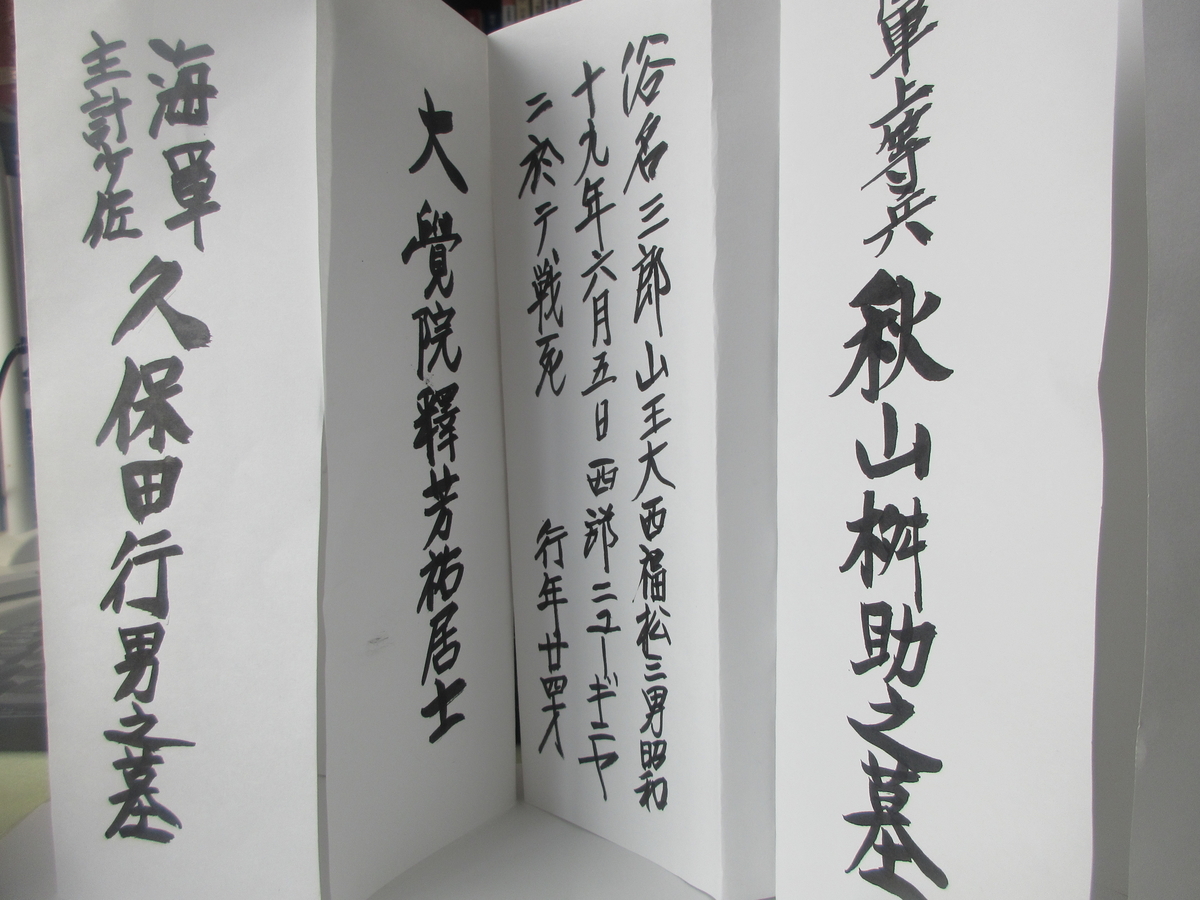 軍上等兵 秋山桝助之墓
俗名三郎山王大西福松三男昭和
十九年六月五日西部ニューギニヤ
ニ於テ戦死 行年廿四才
大覺院釋芳祐居士
海軍
主計少佐
久保田行男之墓